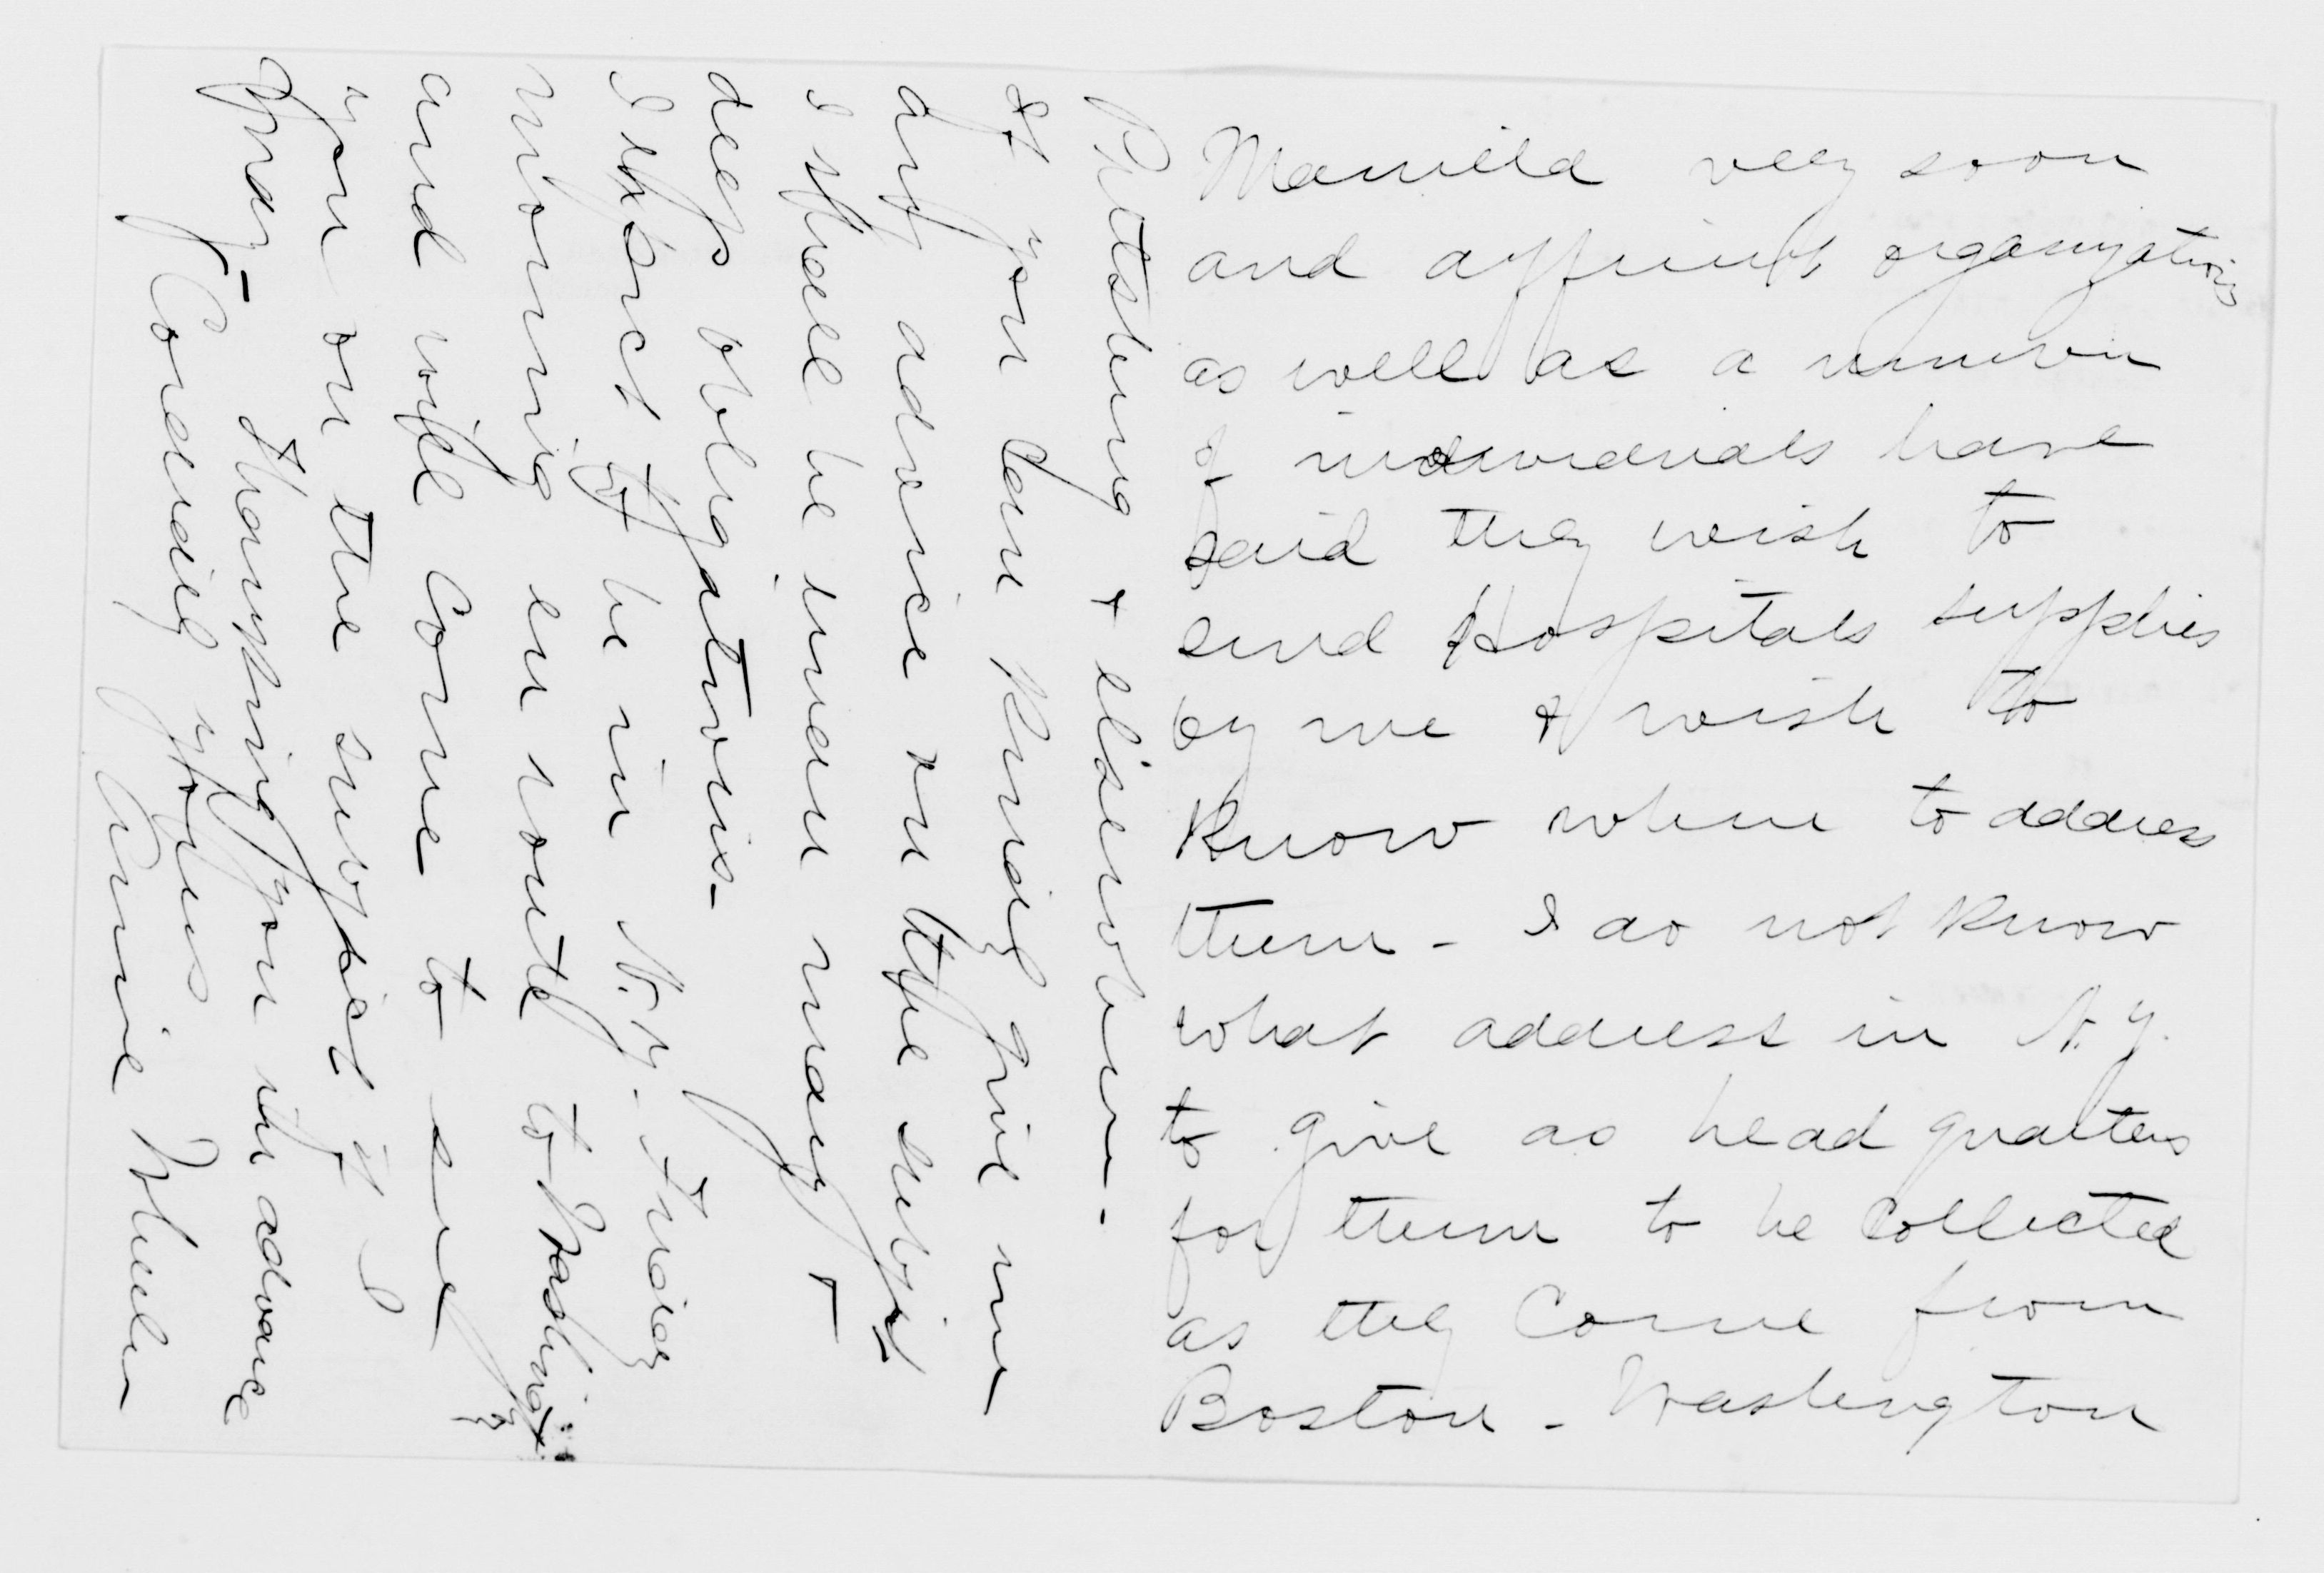 Manilla very soon
and different organizations
as well as a number
of individuals have
said they wish to
send Hospitals supplies
by me & wish to
know where to address
them - I do not know
what address in N.Y.
to give as head quarters
for them to be collected
as they come from
Boston - Washington
Pittsburg & elsewhere.
If you can kindly give me
any advice on the subject
I shall be under many &
deep obligations -
I expect to be in N.Y. Friday
morning en route to Washington
and will come to see
you on the subject if I
may - Thanking you in advance
Cordially yours
Annie Wheeler